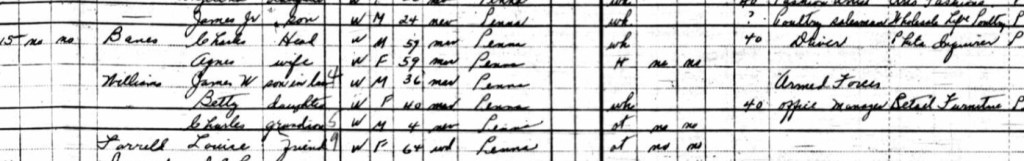 James Jr son W M 24 nev Penna wk ? Poultry salesman Wholesale Live Poultry P
15 no no Banes Charles Head W M 59 mar Penna wk 40 Driver Phila Inquirer P
Agnes wife W F 59 mar Penna H no no
Williams James W son in law 4 W M 36 mar Penna Armed Forces
Betty daughter W F 40 mar Penna wk 40 office manager Retail Furniture P
Charles grandson 5 W M 4 nev Penna ot no no
Farrell Louise Friend 9 W F 64 wd Penna ot no no